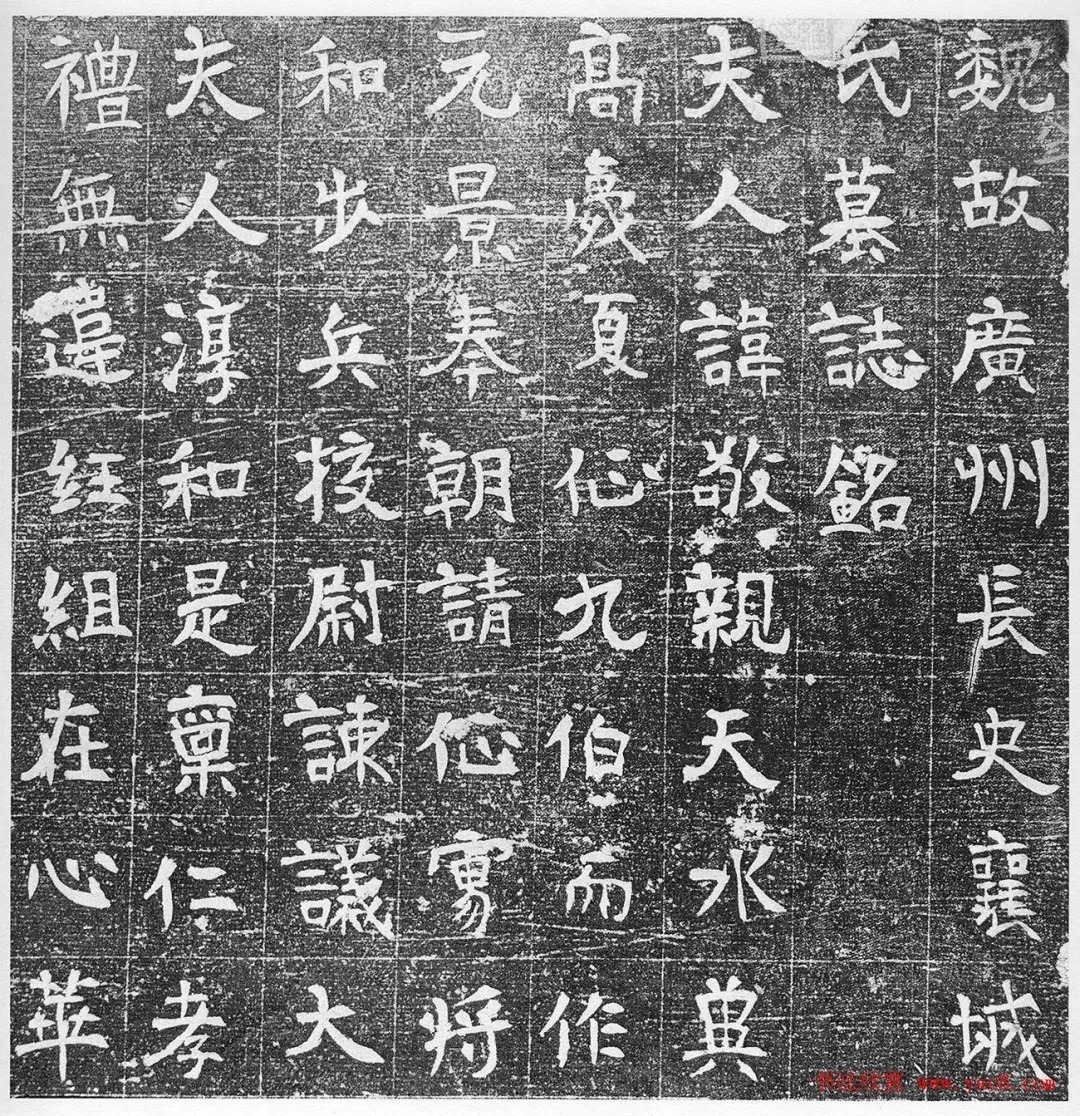 魏故廣州長史襄城
氏墓誌銘
夫人諱敬親天水
高夏九伯而作
元景奉朝請將
和步兵校尉諫議大
夫人淳和是稟仁孝
禮無違紝組在心華
www.yac8.com